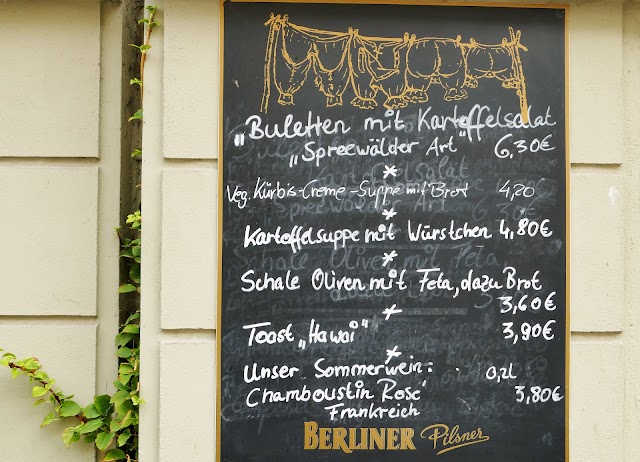 „Buletten mit Kartoffelsalat
„Spreewälder Art" 6,30€
*
Veg. Kürbis-Creme-Suppe mit Brot 4,20
*
Kartoffelsuppe mit Würstchen 4,80€
*
Schale Oliven mit Feta, dazu Brot
3,60€
*
Toast „Hawai" 3,90€
*
Unser Sommerwein: 0,2l
Chamboustin Rosé 3,80€
Frankreich
BERLINER Pilsner